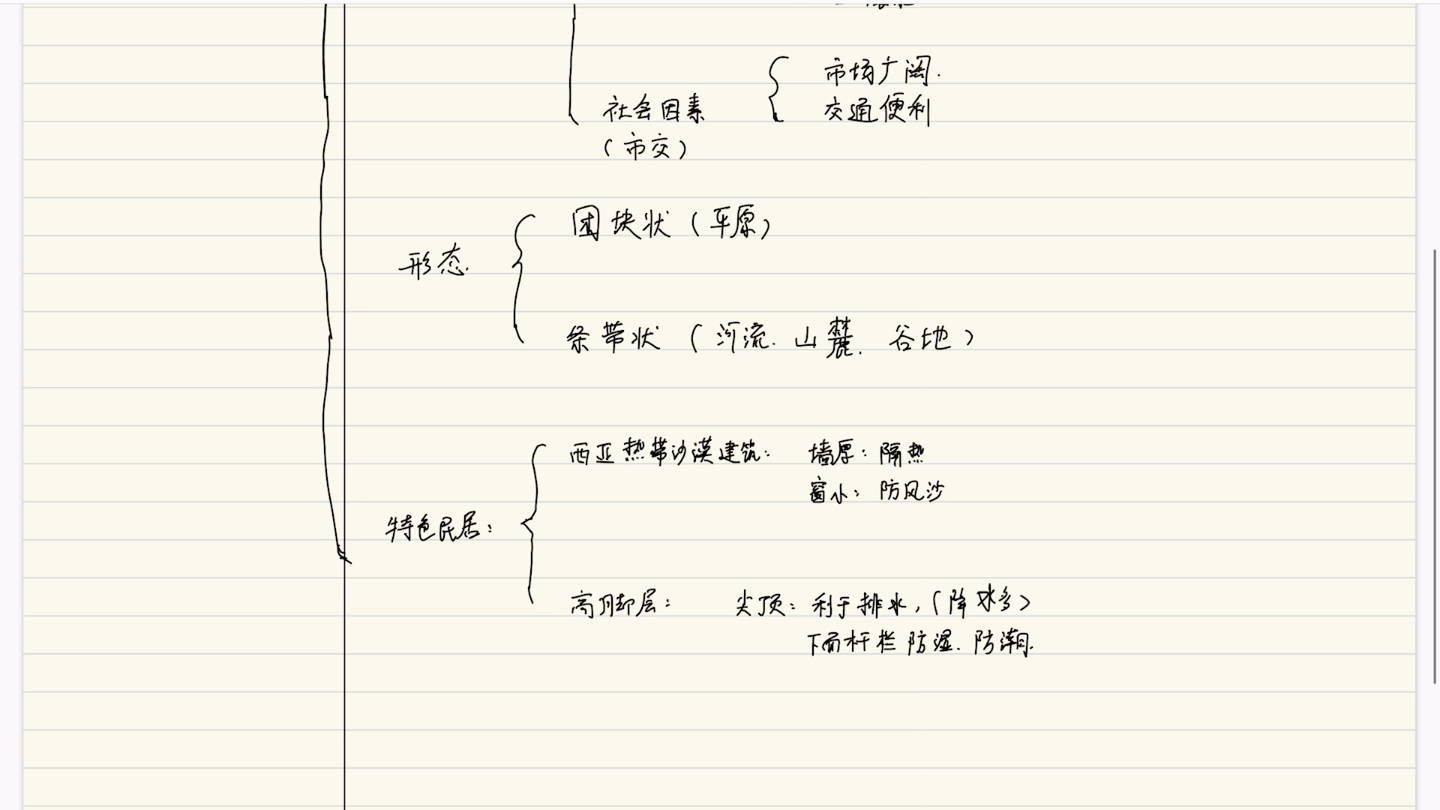 市场广阔.
社会因素
交通便利
(市交)
团块状(平原)
形态.
条带状(河流.山麓.谷地)
西亚热带沙漠建筑: 墙厚:隔热
窗小:防风沙
特色民居:
高脚层: 尖顶:利于排水,(降水多)
下面杆栏防湿.防潮.